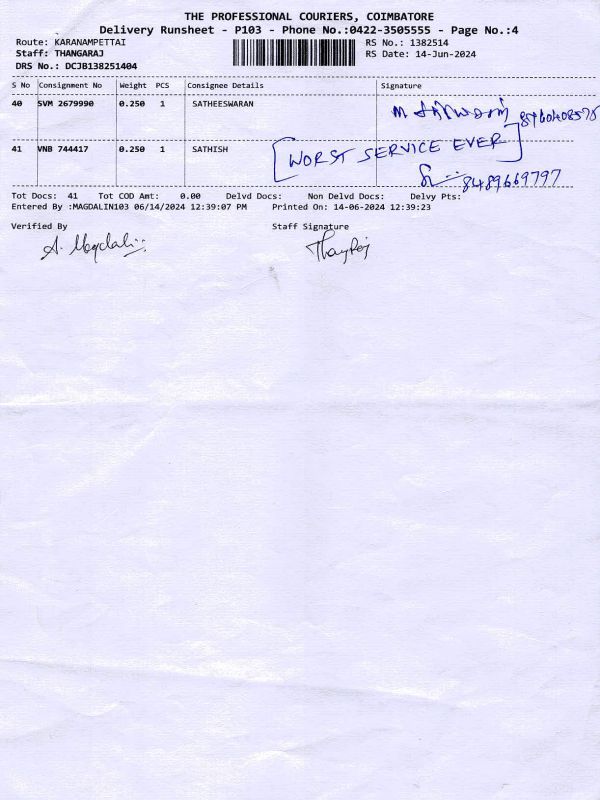 THE PROFESSIONAL COURIERS, COIMBATORE
Delivery Runsheet - P103 - Phone No.:0422-3505555 - Page No.:4
Route: KARANAMPETTAI RS No.: 1382514
Staff: THANGARAJ RS Date: 14-Jun-2024
DRS No.: DCJB138251404
S No Consignment No Weight PCS Consignee Details Signature
40 SVM 2679990 0.250 1 SATHEESWARAN
41 VNB 744417 0.250 1 SATHISH
[WORST SERVICE EVER]
8489669797
Tot Docs: 41 Tot COD Amt: 0.00 Delvd Docs: Non Delvd Docs: Delvy Pts:
Entered By :MAGDALIN103 06/14/2024 12:39:07 PM Printed On: 14-06-2024 12:39:23
Verified By Staff Signature
A. Magdalin Thangaraj